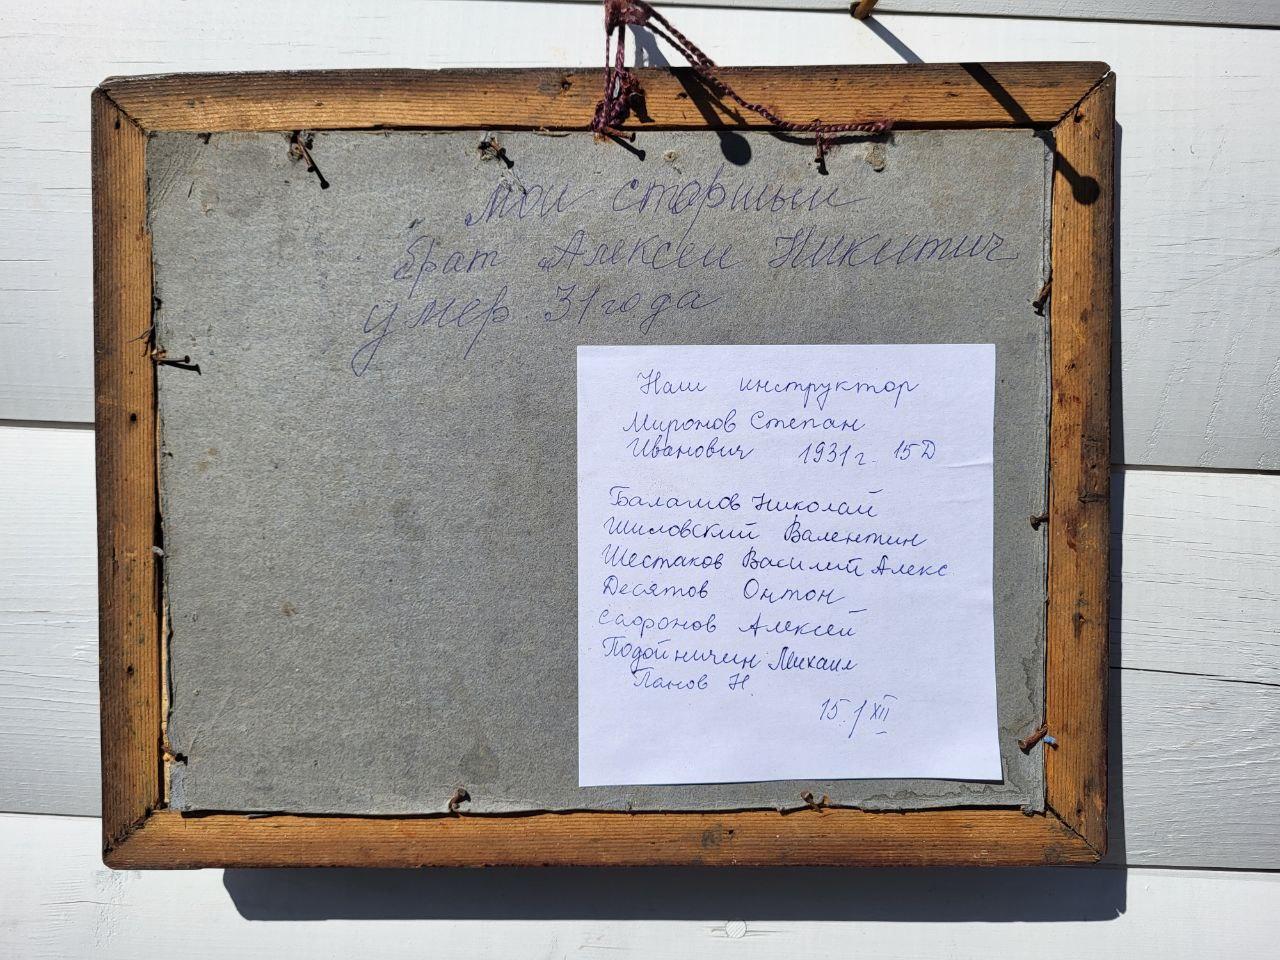 Мои старшыи
брат Алексеи Никитич
умер 31 года
Наш инструктор
Миронов Степан
Иванович 1931 г. 15 Д
Балашов Николай
Шиловский Валентин
Шестаков Василий Алекс.
Десятов Онтон
Сафронов Алексей
Подойничин Михаил
Панов Н.
15 / XII